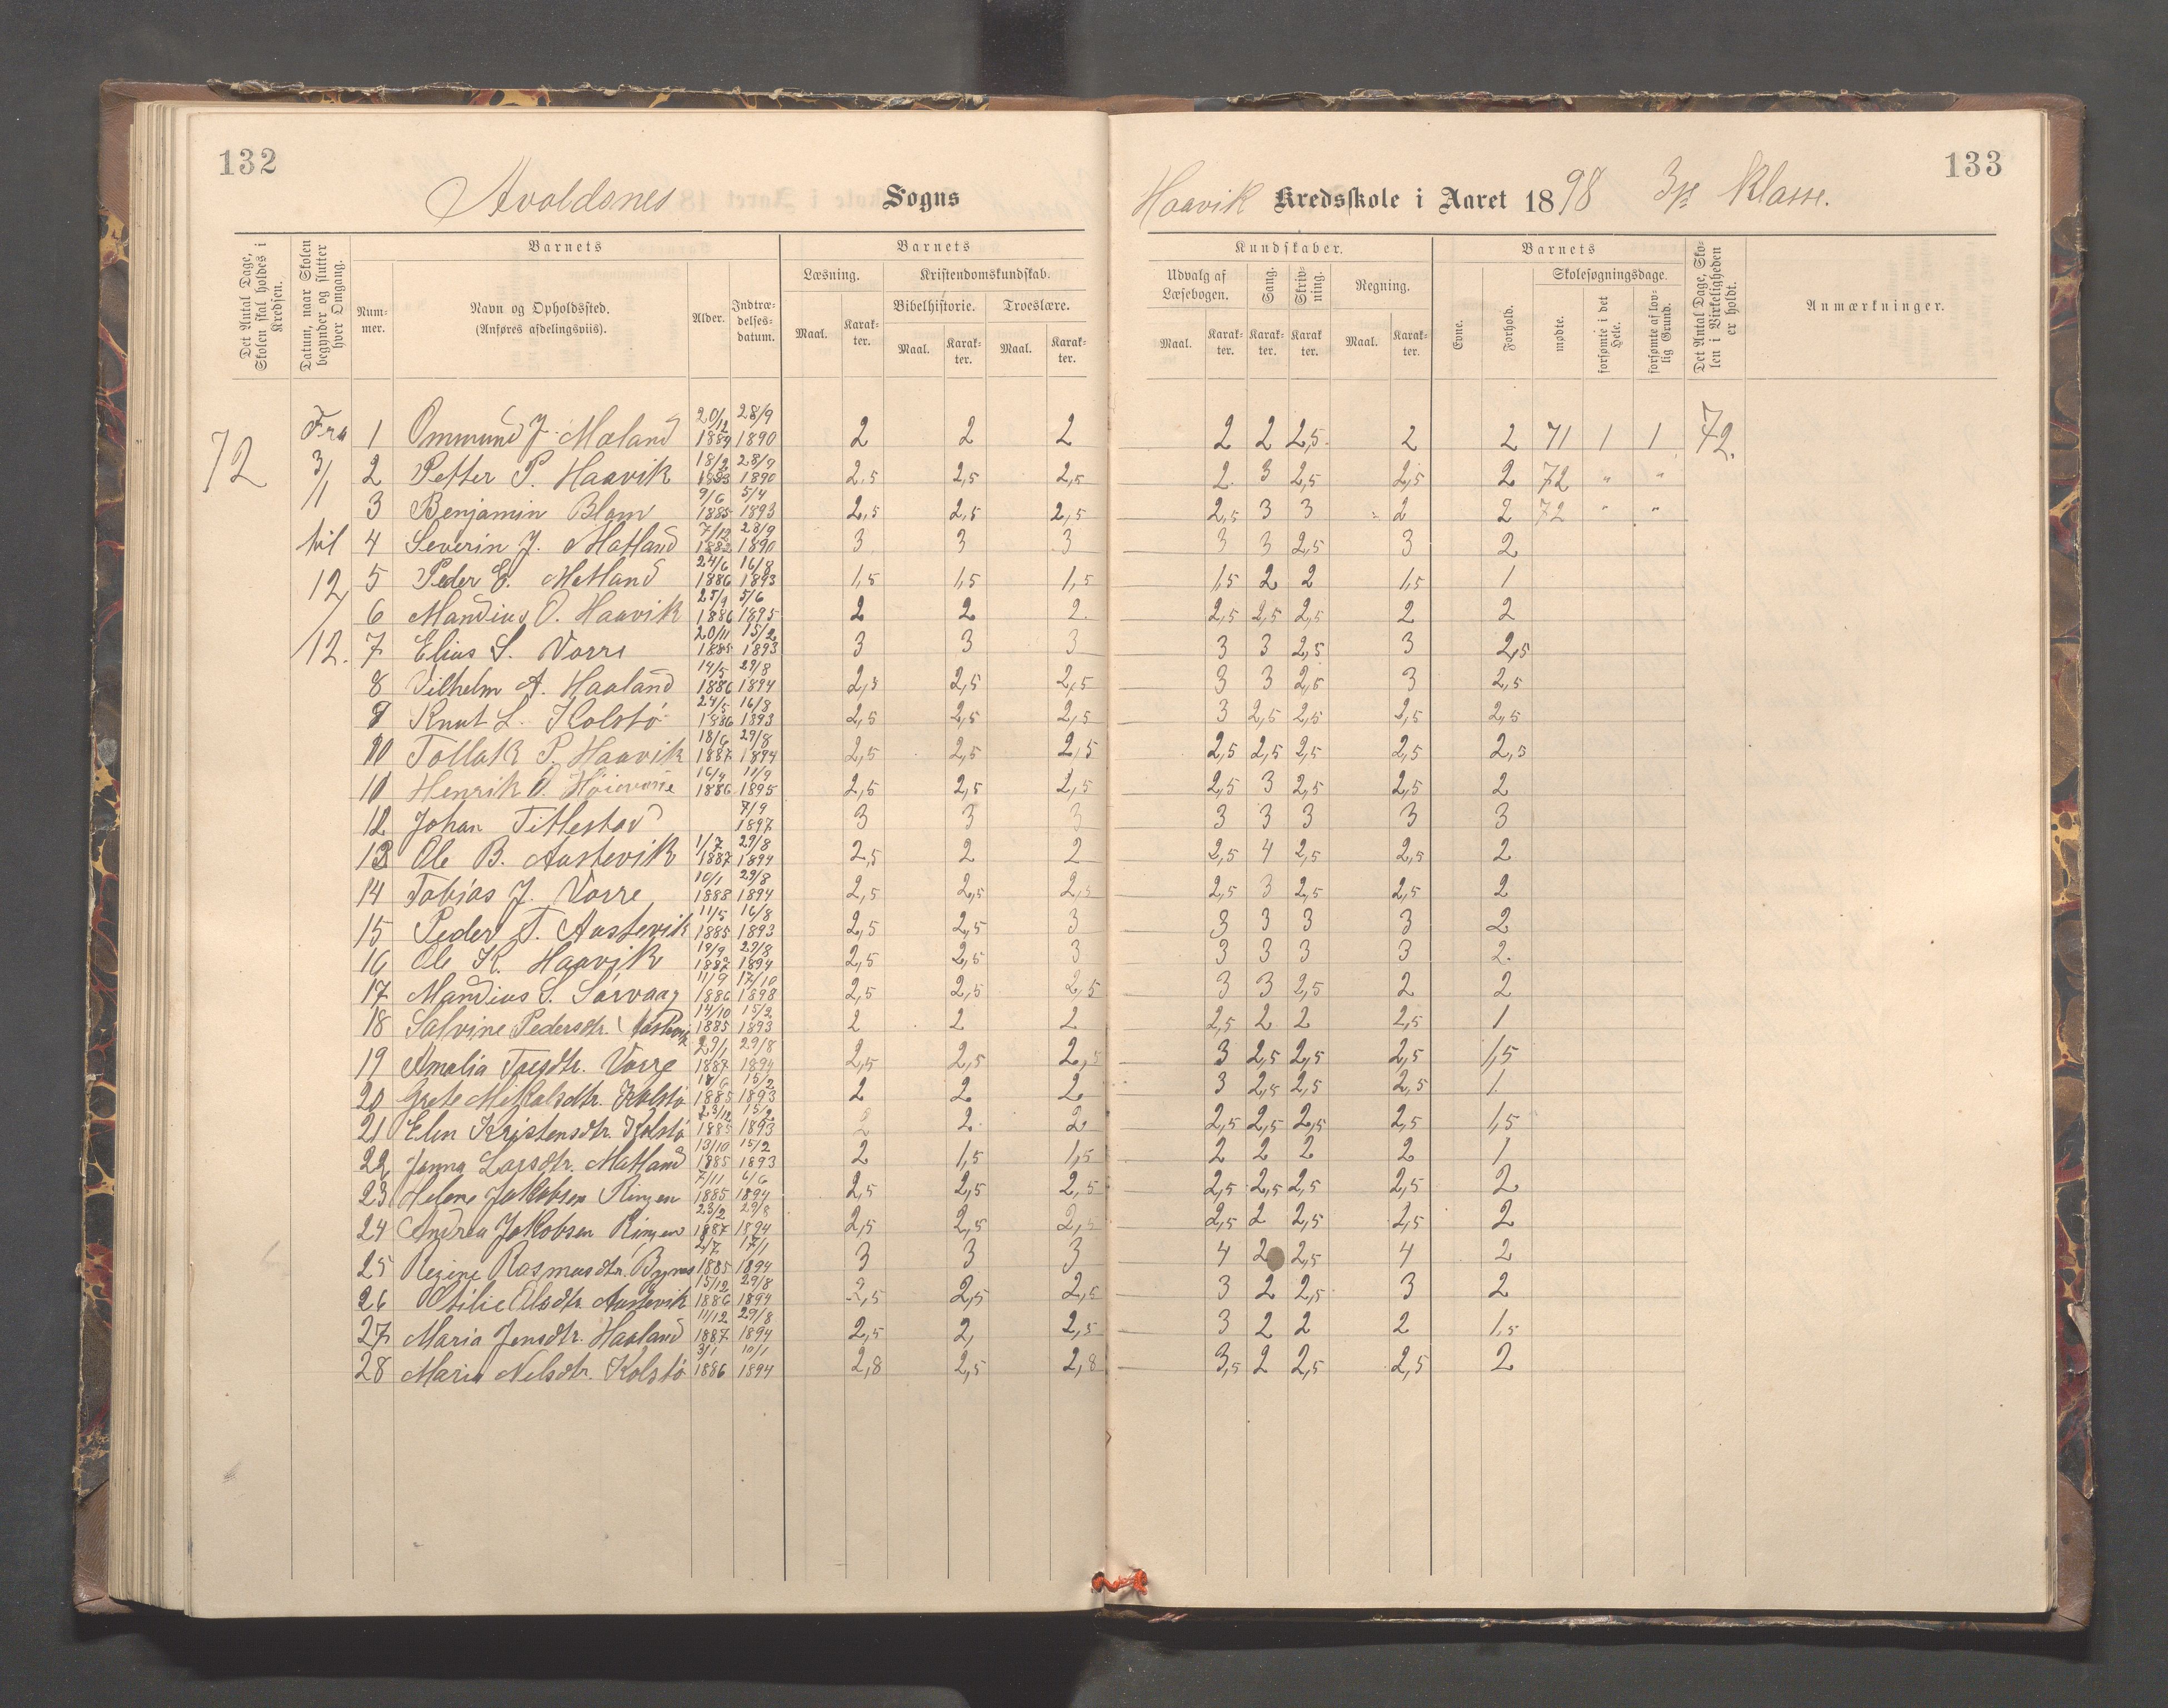 132
Avaldsnes Sogns
Det Antal Dage, Skolen skal holdes i Kredsen.
Datum, naar Skolen begynder og slutter hver Omgang.
Barnets
Num- mer.
Navn og Opholdssted. (Anføres afdelingsviis).
Alder.
Indtræ- delses- datum.
Barnets
Læsning.
Maal. Karak- ter.
Kristendomskundskab.
Bibelhistorie. Troeslære.
Maal. Karak- ter. Maal. Karak- ter.
133
Haavik Kredsskole i Aaret 1898 3die Klasse.
Kundskaber.
Udvalg af Læsebogen.
Sang.
Skriv- ning.
Regning.
Maal. Karak- ter. Karak- ter. Karak- ter. Maal. Karak- ter.
Barnets
Evne.
Forhold.
Skolesøgningsdage.
mødte.
forsømte i det Hele.
forsømte af lov- lig Grund.
Det Antal Dage, Sko- len i Virkeligheden er holdt.
Anmærkninger.
72
Fra
3/1
til
12/12.
1 Ommund J. Mæland 20/12 1884 28/9 1890 2 2 2 2 2 2,5 2 2 71 1 1 72.
2 Petter P. Haavik 18/2 1883 28/9 1890 2,5 2,5 2,5 2 3 2,5 2,5 2 72 " "
3 Benjamin Blom 9/6 1885 5/4 1893 2,5 2,5 2,5 2,5 3 3 2 2 72 " "
4 Severin J. Matland 7/12 1882 28/9 1890 3 3 3 3 3 2,5 3 2
5 Peder E. Metland 24/6 1886 16/8 1893 1,5 1,5 1,5 1,5 2 2 1,5 1
6 Mandius O. Haavik 25/9 1886 5/6 1895 2 2 2 2,5 2,5 2,5 2 2
7 Elias S. Vorre 20/11 1885 15/2 1893 3 3 3 3 3 2,5 3 2,5
8 Vilhelm A. Haaland 14/5 1886 29/8 1894 2,5 2,5 2,5 3 3 2,5 3 2,5
9 Knut L. Kolstø 24/5 1886 16/8 1893 2,5 2,5 2,5 3 2,5 2,5 2,5 2,5
10 Tollak P. Haavik 18/6 1887 29/8 1894 2,5 2,5 2,5 2,5 2,5 2,5 2,5 2,5
11 Henrik O. Høievorre 16/4 1886 11/9 1895 2,5 2,5 2,5 2,5 3 2,5 2,5 2
12 Johan Tittlestad 7/9 1897 3 3 3 3 3 3 3 3
13 Ole B. Austevik 1/7 1887 29/8 1894 2,5 2 2 2,5 4 2,5 2,5 2
14 Tobias J. Vorre 10/1 1888 29/8 1894 2,5 2,5 2,5 2,5 3 2,5 2,5 2
15 Peder T. Austevik 11/5 1885 16/8 1893 2,5 2,5 3 3 3 3 3 2
16 Ole K. Haavik 19/9 1887 29/8 1894 2,5 2,5 3 3 3 3 3 2.
17 Mandius S. Sørvaag 11/9 1886 17/10 1898 2,5 2,5 2,5 3 3 2,5 2 2
18 Salvine Pedersdtr. 14/10 1885 15/2 1893 2 2 2 2,5 2 2 2,5 1
19 Amalia Toresdtr. Vorre 29/1 1887 29/8 1894 2,5 2,5 2,5 3 2,5 2,5 2,5 1,5
20 Grete Mikalsdtr. Kolstø 1885 15/2 1893 2 2 2 3 2,5 2,5 2,5 1
21 Elen Kristensdtr. Kolstø 23/12 1885 15/2 1893 2 2 2 2,5 2,5 2,5 2,5 1,5
22 Janna Larsdtr. Matland 13/10 1885 15/2 1893 2 1,5 1,5 2 2 2 2 1
23 Helene Jakobsen Ringen 7/11 1885 6/6 1894 2,5 2,5 2,5 2,5 2,5 2,5 2,5 2
24 Andrea Jakobsen Ringen 23/2 1887 29/8 1894 2,5 2,5 2,5 2,5 2 2,5 2,5 2
25 Regine Rasmusdtr. Bynes 2/7 1885 17/1 1894 3 3 3 4 2 2,5 4 2
26 Otilie Olsdtr. Austevik 15/12 1886 29/8 1894 2,5 2,5 2,5 3 2 2,5 3 2
27 Maria Jensdtr. Haaland 11/12 1887 29/8 1894 2,5 2, 2,5 3 2 2 2 1,5
28 Maria Nelsdtr. Kolstø 3/1 1886 10/1 1894 2,8 2,5 2,8 3,5 2 2,5 2,5 2